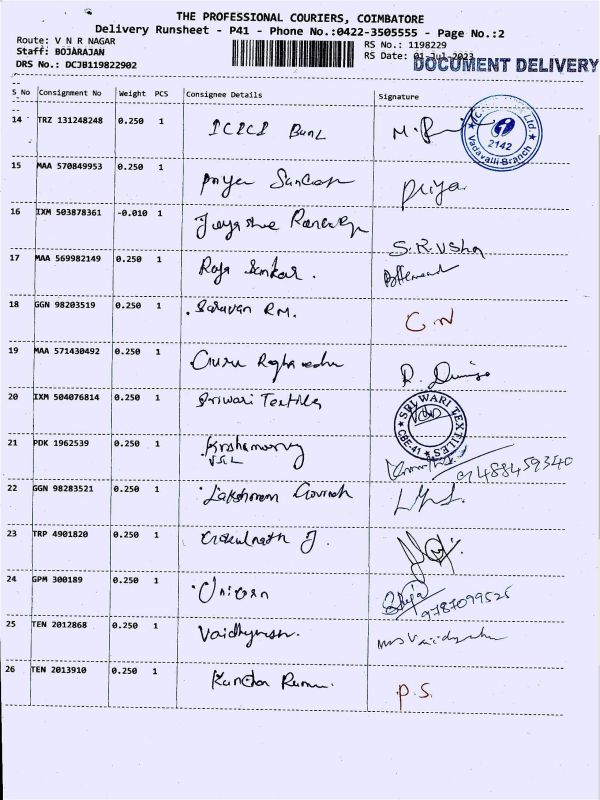 THE PROFESSIONAL COURIERS, COIMBATORE
Delivery Runsheet - P41 - Phone No.:0422-3505555 - Page No.:2
Route: V N R NAGAR
RS No.: 1198229
Staff: BOJARAJAN
RS Date: 01-Jul-2023
DOCUMENT DELIVERY
DRS No.: DCJB119822902
S No Consignment No Weight PCS Consignee Details Signature
14 TRZ 131248248 0.250 1 ICICI Bank
Vadavalli Branch
2142
Ltd.
15 MAA 570849953 0.250 1 Priya Santosh Priya
16 IXM 503878361 -0.010 1 S.R.Usha
17 MAA 569982149 0.250 1 Raja Sankar.
18 GGN 98203519 0.250 1 Saravan R.M. G.N
19 MAA 571430492 0.250 1 Guru
20 IXM 504076814 0.250 1 Sriwari Textiles
SRI WARI TEXTILES
CBE-41
21 PDK 1962539 0.250 1 Krishnamurthy
22 GGN 98283521 0.250 1 Lakshman Govind
23 TRP 4901820 0.250 1 J.
24 GPM 300189 0.250 1 Unicorn
9787099525
25 TEN 2012868 0.250 1 Vaidhyanathan.
26 TEN 2013910 0.250 1 P.S.